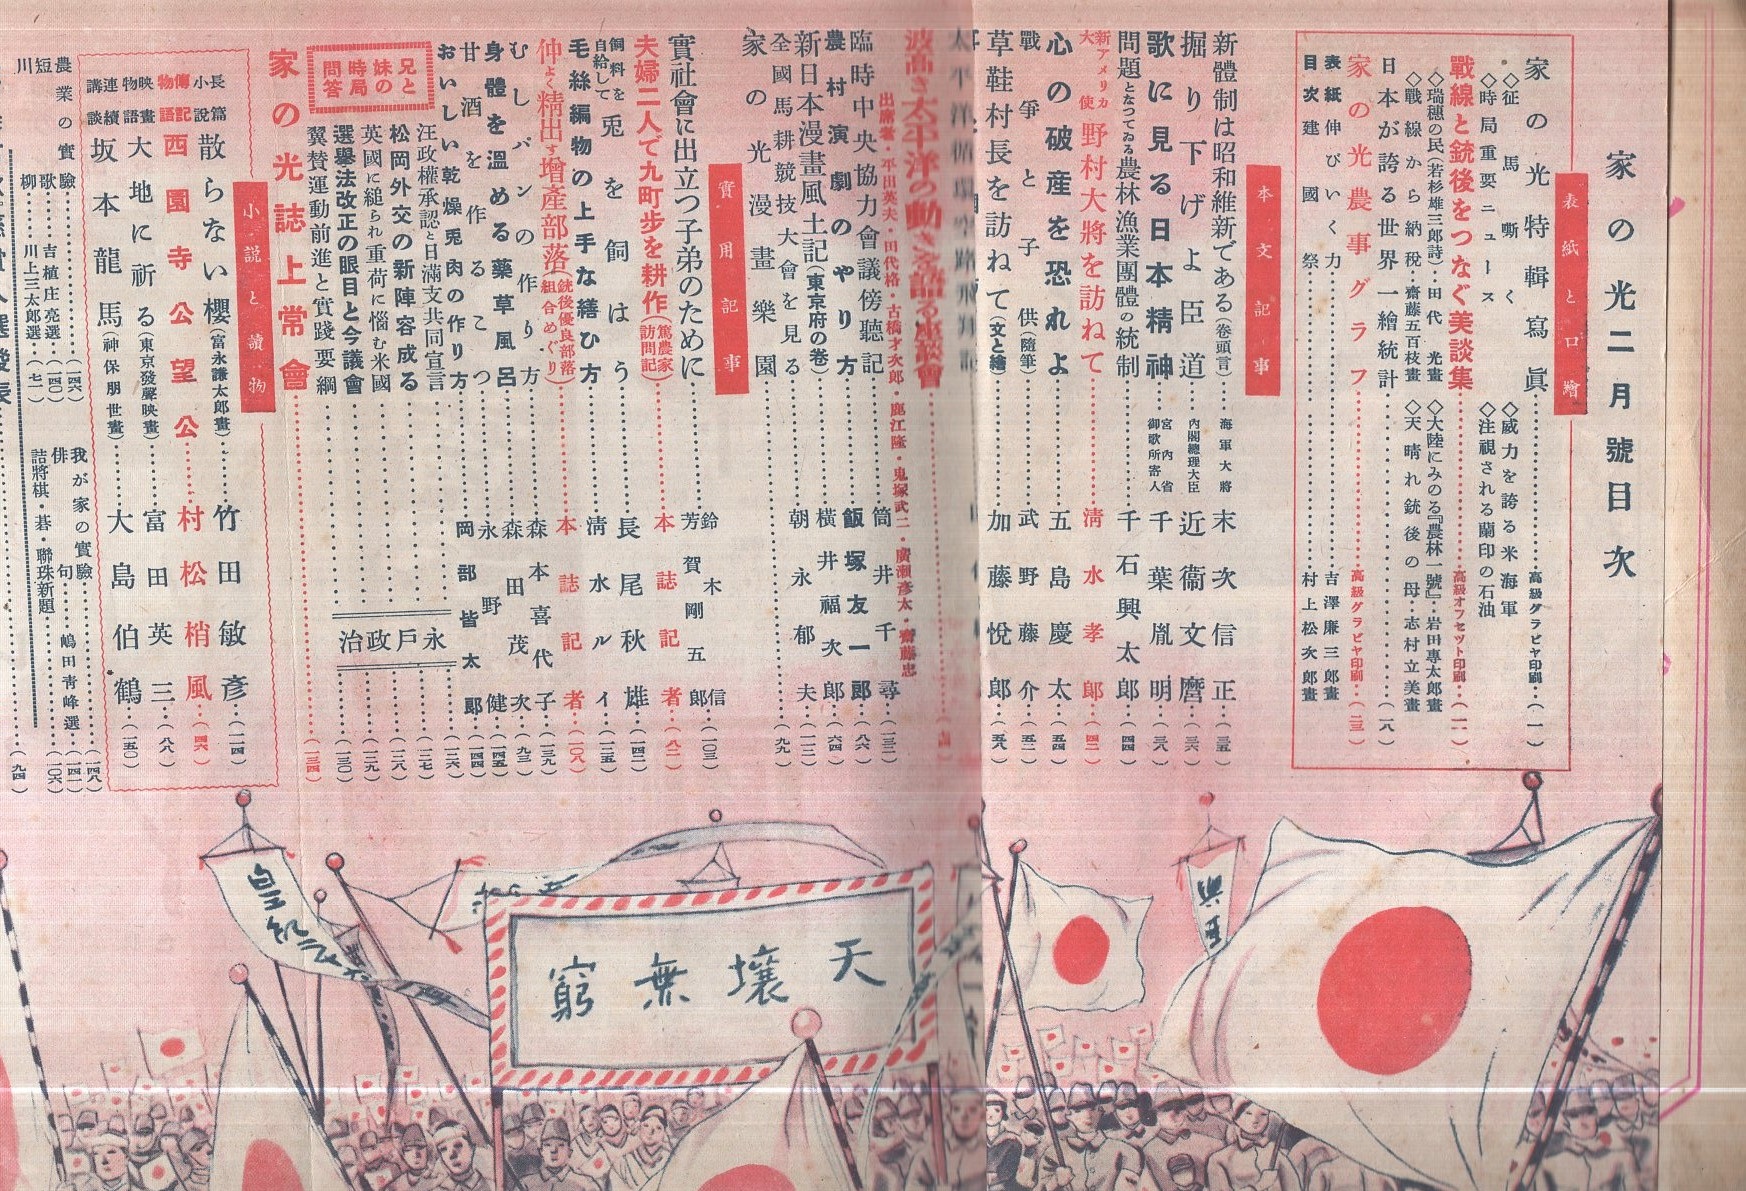 家の光二月號目次
表紙と口繪
家の光特輯寫眞……高級グラビヤ印刷…(一)
◇征馬嘶く
◇威力を誇る米海軍
◇時局重要ニュース
◇注視される蘭印の石油
戰線と銃後をつなぐ美談集……高級オフセット印刷…(一一)
◇瑞穗の民(若杉雄三郎詩)…田代光畫
◇大陸にみのる『農林一號』…岩田專太郎畫
◇戰線から納稅…齋藤五百枝畫
◇天晴れ銃後の母…志村立美畫
日本が誇る世界一繪統計……(一八)
家の光農事グラフ……高級グラビヤ印刷…(二三)
表紙 伸びいく力……吉澤廉三郎畫
目次 建國祭……村上松次郎畫
本文記事
新體制は昭和維新である(卷頭言)……海軍大將 末次信正…(三五)
掘り下げよ臣道……內閣總理大臣 近衞文麿…(三六)
歌に見る日本精神……宮內省御歌所寄人 千葉胤明…(三八)
問題となつてゐる農林漁業團體の統制……千石興太郎…(四四)
新アメリカ大使 野村大將を訪ねて……淸水孝郎…(四二)
心の破産を恐れよ……五島慶太…(五四)
戰爭と子供(隨筆)……武野藤介…(五二)
草鞋村長を訪ねて(文と繪)……加藤悅郎…(五八)
波高き太平洋の動きを語る座談會
出席者・平出英夫・田代格・古橋才次郎・鹿江隆・鬼塚武二・廣瀨彥太・齋藤忠
臨時中央協力會議傍聽記……筒井千尋…(一三二)
農村演劇のやり方……飯塚友一郎…(八六)
新日本漫畫風土記(東京府の卷)……橫井福次郎…(六四)
全國馬耕競技大會を見る……朝永郁夫…(一一三)
家の光漫畫樂園……(九九)
實用記事
實社會に出立つ子弟のために……鈴木信 芳賀剛五郎…(一〇三)
夫婦二人で九町步を耕作(篤農家訪問記)……本誌記者…(八二)
飼料を自給して兎を飼はう……長尾秋雄…(一四二)
毛絲編物の上手な繕ひ方……淸水ルイ…(一三五)
仲よく精出す增產部落(銃後優良部落組合めぐり)……本誌記者…(一〇八)
むしパンの作り方……森本喜代子…(一三九)
身體を溫める藥草風呂……森田茂次…(九三)
甘酒を作るこつ……永野健…(一四五)
おいしい乾燥兎肉の作り方……岡部皆太郎…(一四四)
兄と妹の時局問答
汪政權承認と日滿支共同宣言……(一二六)
松岡外交の新陣容成る……(一二七)
英國に縋られ重荷に惱む米國……(一二八)
選擧法改正の眼目と今議會……(一二九)
翼贊運動前進と實踐要綱……(一三〇)
永戶政治
家の光誌上常會……(一三四)
小說と讀物
長篇小說 散らない櫻(富永謙太郎畫)……竹田敏彥…(一二四)
傳記物語 西園寺公望公……村松梢風…(四六)
映畫物語 大地に祈る(東京發聲映畫)……富田英三…(八八)
連續講談 坂本龍馬(神保朋世畫)……大島伯鶴…(一五〇)
農業の實驗……(一四六)
我が家の實驗……(一四八)
短歌……吉植庄亮選…(一四〇)
俳句……嶋田靑峰選…(一四一)
川柳……川上三太郎選…(七一)
詰將棋・碁・聯珠新題……(一〇六)
(九四)
天壤無窮
皇紀二千六